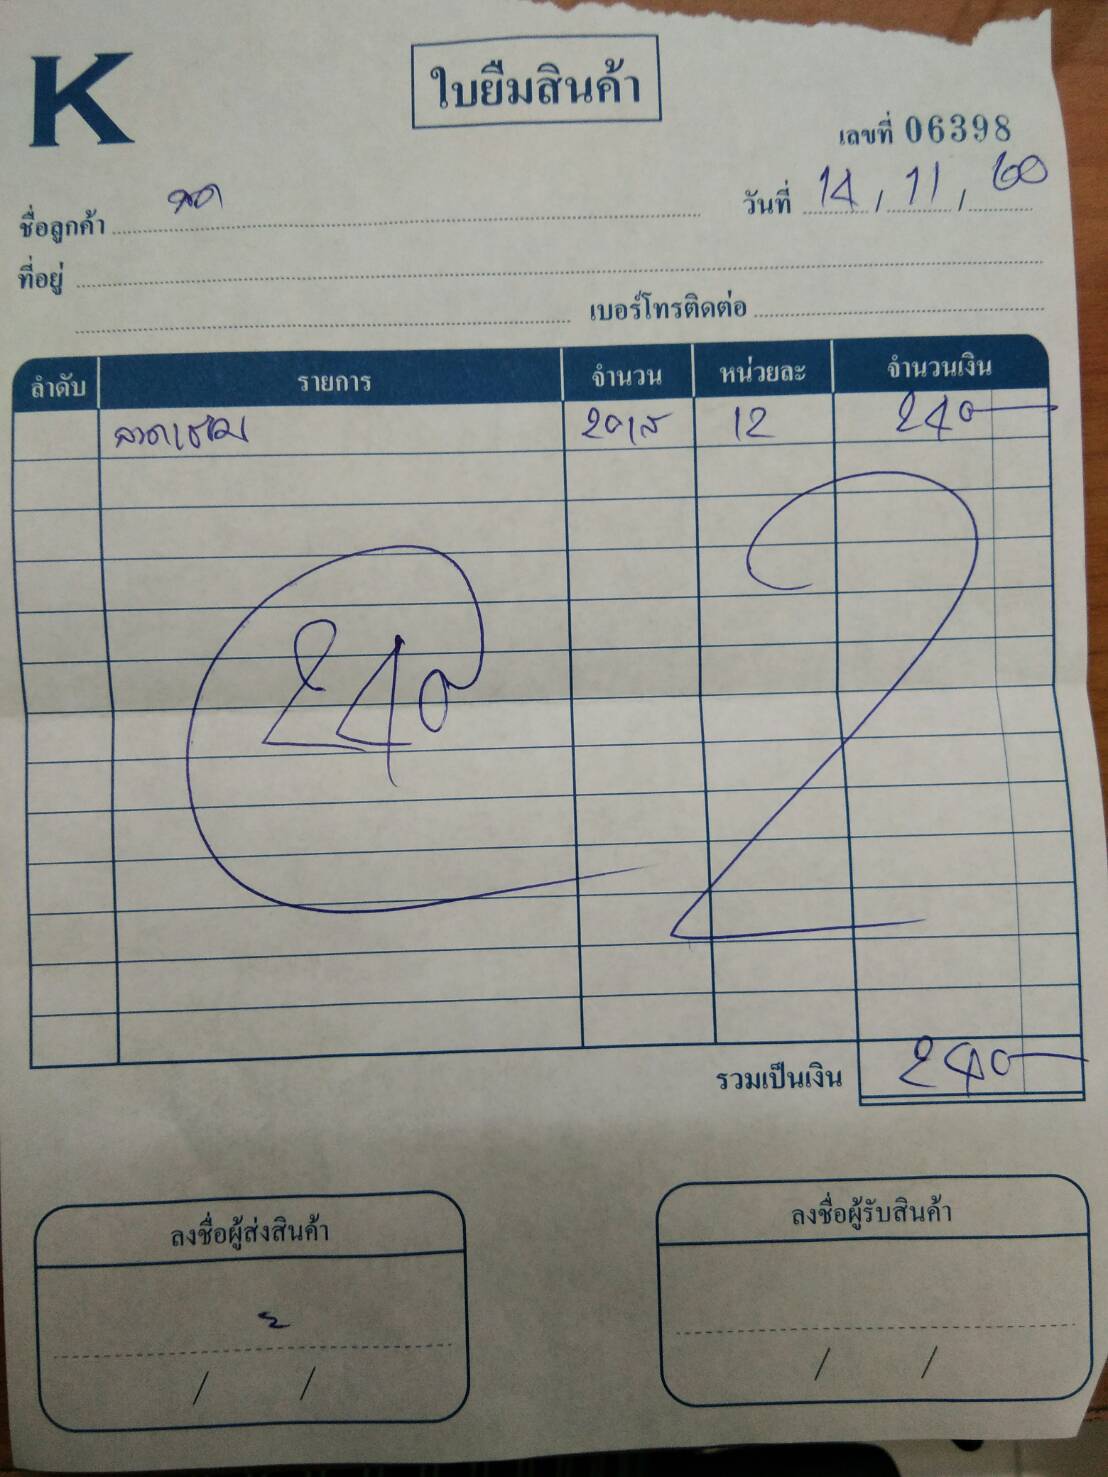 K
ใบยืมสินค้า
เลขที่ 06398
ชื่อลูกค้า
วันที่ 14 / 11 / 60
ที่อยู่
เบอร์โทรติดต่อ
ลำดับ รายการ จำนวน หน่วยละ จำนวนเงิน
20 12 240
240
2
รวมเป็นเงิน 240
ลงชื่อผู้ส่งสินค้า ลงชื่อผู้รับสินค้า
/ / / /